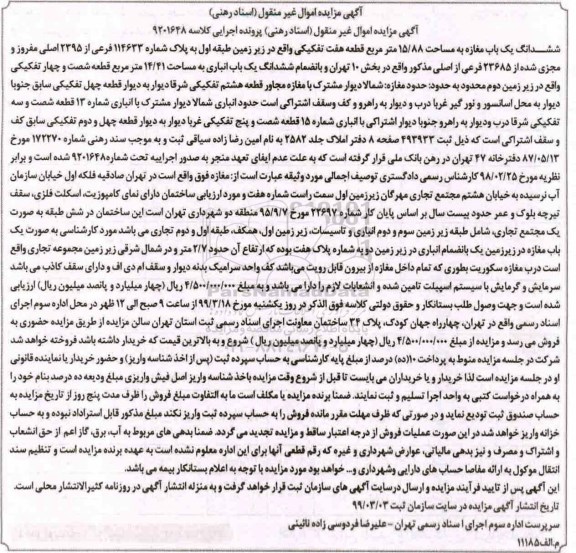 آگهی مزایده اموال غیر منقول (اسناد رهنی)
آگهی مزایده اموال غیر منقول (اسناد رهنی) پرونده اجرایی کلاسه ۹۲۰۱۶۴۸
ششدانگ یک باب مغازه به مساحت ۱۵/۸۸ متر مربع قطعه هفت تفکیکی واقع در زیر زمین طبقه اول به پلاک شماره ۱۱۴۶۳۳ فرعی از ۲۳۹۵ اصلی مفروز و
مجزی شده از ۲۳۶۸۵ فرعی از اصلی مذکور واقع در بخش ۱۰ تهران و بانضمام ششدانگ یک باب انباری به مساحت ۱۴/۴۱ متر مربع قطعه شصت و چهار تفکیکی
واقع در زیر زمین دوم محدود به حدود: حدود مغازه: شمالا دیوار مشترک با مغازه مجاور قطعه هشتم تفکیکی شرقا دیوار به دیوار قطعه چهل تفکیکی سابق جنوبا
دیوار به محل آسانسور و نور گیر غربا درب و دیوار به راهرو و کف وسقف اشتراکی است حدود انباری شمالا دیوار مشترک با انباری شماره ۱۳ قطعه شصت و سه
تفکیکی شرقا درب ودیوار به راهرو جنوبا دیوار اشتراکی با انباری شماره ۱۵ قطعه شصت و پنج تفکیکی غربا دیوار به دیوار قطعه چهل و دوم تفکیکی سابق کف
و سقف اشتراکی است که ذیل ثبت ۴۹۳۹۳۳ صفحه ۸ دفتر املاک جلد ۲۵۸۲ به نام امین رضا زاده سیاقی ثبت و به موجب سند رهنی شماره ۱۷۲۲۷۰ مورخ
۸۷/۰۵/۱۳ دفترخانه ۴۷ تهران در رهن بانک ملی قرار گرفته است که به علت عدم ایفای تعهد منجر به صدور اجراییه تحت شماره ۹۲۰۱۶۴۸ شده است و برابر
نظریه مورخ ۹۸/۰۲/۲۵ کارشناس رسمی دادگستری توصیف اجمالی مورد وثیقه عبارت است از: مغازه فوق واقع است در تهران صادقیه فلکه اول خیابان سازمان
آب نرسیده به خیابان هشتم مجتمع تجاری مهرگان زیرزمین اول سمت راست شماره هفت و مورد ارزیابی ساختمان دارای نمای کامپوزیت، اسکلت فلزی، سقف
تیرچه بلوک و عمر حدود بیست سال بر اساس پایان کار شماره ۲۲۶۹۷ مورخ ۹۵/۹/۷ منطقه دو شهرداری تهران است این ساختمان در شش طبقه به صورت
یک مجتمع تجاری، شامل طبقه زیر زمین سوم و دوم انباری و تاسیسات، زیر زمین اول، همکف، طبقه اول و دوم تجاری می باشد مورد کارشناسی به صورت یک
باب مغازه در زیرزمین یک بانضمام انباری در زیر زمین دو به شماره پلاک هفت بوده که ارتفاع آن حدود ۲/۷ متر و در شمال شرقی زیر زمین مجموعه تجاری واقع
است درب مغازه سکوریت بطوری که تمام داخل مغازه از بیرون قابل رویت می‌باشد کف واحد سرامیک بدنه دیوار و سقف ام دی اف و دارای سقف کاذب می باشد
سرمایش و گرمایش با سیستم اسپیلت تامین شده و انشعابات لازم را دارا می باشد و به مبلغ ۴/۵۰۰/۰۰۰/۰۰۰ ریال (چهار میلیارد و پانصد میلیون ریال) ارزیابی
شده است و جهت وصول طلب بستانکار و حقوق دولتی کلاسه فوق الذکر در روز یکشنبه مورخ ۹۹/۳/۱۸ از ساعت ۹ صبح الی ۱۲ ظهر در محل اداره سوم اجرای
اسناد رسمی واقع در تهران، چهارراه جهان کودک، پلاک ۲۴ ساختمان معاونت اجرای اسناد رسمی ثبت استان تهران سالن مزایده از طریق مزایده حضوری به
فروش می رسد و مزایده از مبلغ ۴/۵۰۰/۰۰۰/۰۰۰ ریال (چهار میلیارد و پانصد میلیون ریال) شروع و به بالاترین قیمت که خریدار داشته باشد فروخته خواهد شد
شرکت در جلسه مزایده منوط به پرداخت ۱۰(ده) درصد از مبلغ پایه کارشناسی به حساب سپرده ثبت (پس از اخذ شناسه واریز) و حضور خریدار یا نماینده قانونی
او در جلسه مزایده است لذا خریدار و یا خریداران می بایست تا قبل از شروع وقت مزایده باخذ شناسه واریز اصل فیش واریزی مبلغ ودیعه ده درصد بنام خود را
به همراه درخواست کتبی به واحد اجرا تسلیم و ثبت نمایند. ضمنا برنده مزایده مکلف است ما به التفاوت مبلغ فروش را ظرف مدت پنج روز از تاریخ مزایده به
حساب صندوق ثبت تودیع نماید و در صورتی که ظرف مهلت مقرر مانده فروش را به حساب سپرده ثبت واریز نکند مبلغ مذکور قابل استرداد نبوده و به حساب
خزانه واریز خواهد شد در این صورت عملیات فروش از درجه اعتبار ساقط و مزایده تجدید می گردد. ضمنا بدهی های مربوط به آب، برق، گاز اعم از حق انشعاب
و اشتراک و مصرف و نیز بدهی مالیاتی، عوارض شهرداری و غیره که رقم قطعی آنها برای این اداره معلوم نشده است به عهده برنده مزایده است و تنظیم سند
انتقال موکول به ارائه مفاصا حساب های دارایی وشهرداری و... خواهد بود مورد مزایده با توجه به اعلام بستانکار بیمه می باشد.
این آگهی پس از تایید فرآیند مزایده و ارسال درسایت آگهی های سازمان ثبت قرار خواهد گرفت و به منزله انتشار آگهی در روزنامه کثیرالانتشار محلی است.
تاریخ انتشار آگهی مزایده در سایت سازمان ثبت ۹۹/۰۳/۰۳
سرپرست اداره سوم اجرای اسناد رسمی تهران - علیرضا فردوسی زاده نائینی
م.الف۱۱۱۸۵